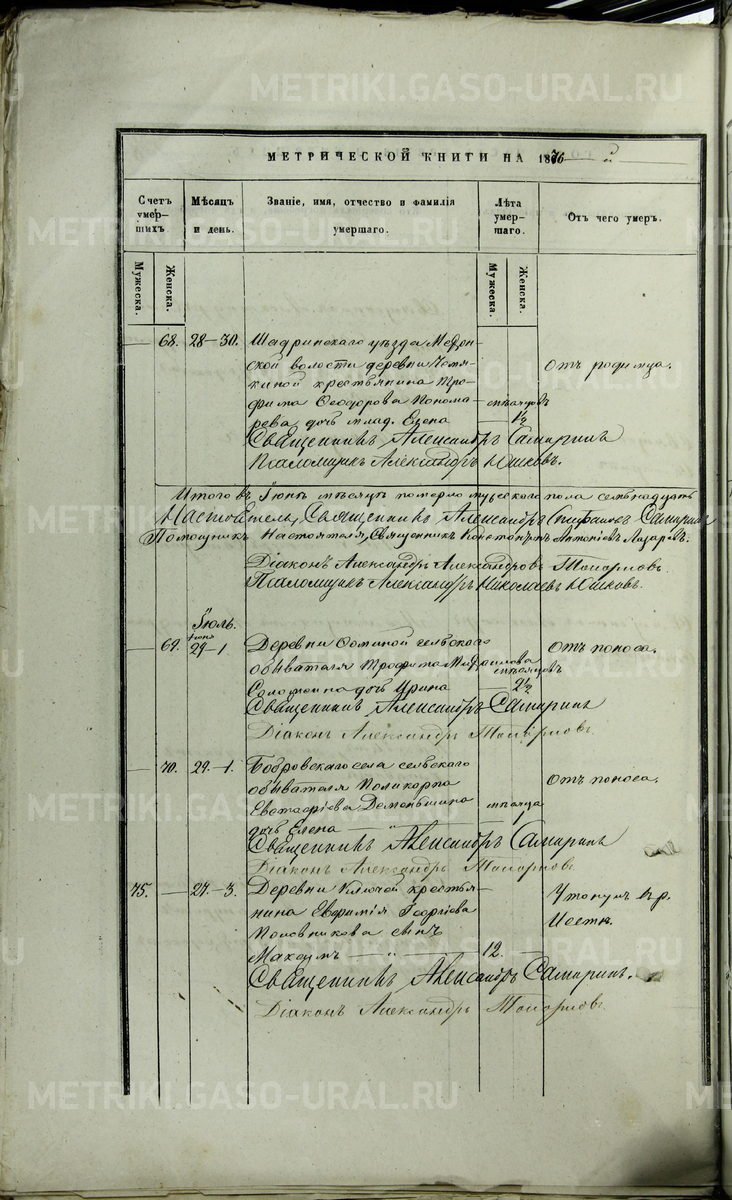 METRIKI.GASO-URAL.RU
МЕТРИЧЕСКОЙ КНИГИ НА 1876 й
Счетъ умер-шихъ.
Мѣсяцъ и день.
Званіе, имя, отчество и фамилія умершаго.
Лѣта умер-шаго.
Отъ чего умеръ.
Мужеска.
Женска.
Мужеска.
Женска.
— 68. 28—30. Шадринскаго уѣзда
ской волости деревни
киной крестьянина Тро- Отъ родимца.
фима Ѳеодорова Понома-
рева дочь млад. Елена
Священникъ Александръ Самаринъ
Псаломщикъ Александръ Юшковъ.
Итого въ Іюнѣ мѣсяцѣ померло мужескаго пола семьнадцать
Настоятель, Священникъ Александръ Стефановъ Самаринъ
Помощникъ Настоятеля, Священникъ Константинъ Антоніевъ Лазаревъ.
Діаконъ Александръ Александровъ
Псаломщикъ Александръ Николаевъ Юшковъ.
Іюль.
— 69. іюня 29—1. Деревни Ѳоминой сельскаго Отъ поноса.
обывателя Трофима
дочь Ирина 2½
Священникъ Александръ Самаринъ
Діаконъ Александръ
— 70. 29.—1. Бобровскаго села сельскаго
обывателя Поликарпа Отъ поноса.
Евстафіева Деменьшина мѣсяца
дочь Елена — " —
Священникъ Александръ Самаринъ
Діаконъ Александръ
75. — 27.—3. Деревни Ключей крестья- Утонулъ въ р.
нина Евфимія Георгіева Исети.
сынъ
Максимъ — " — 12. —
Священникъ Александръ Самаринъ.
Діаконъ Александръ
METRIKI.GASO-URAL.RU